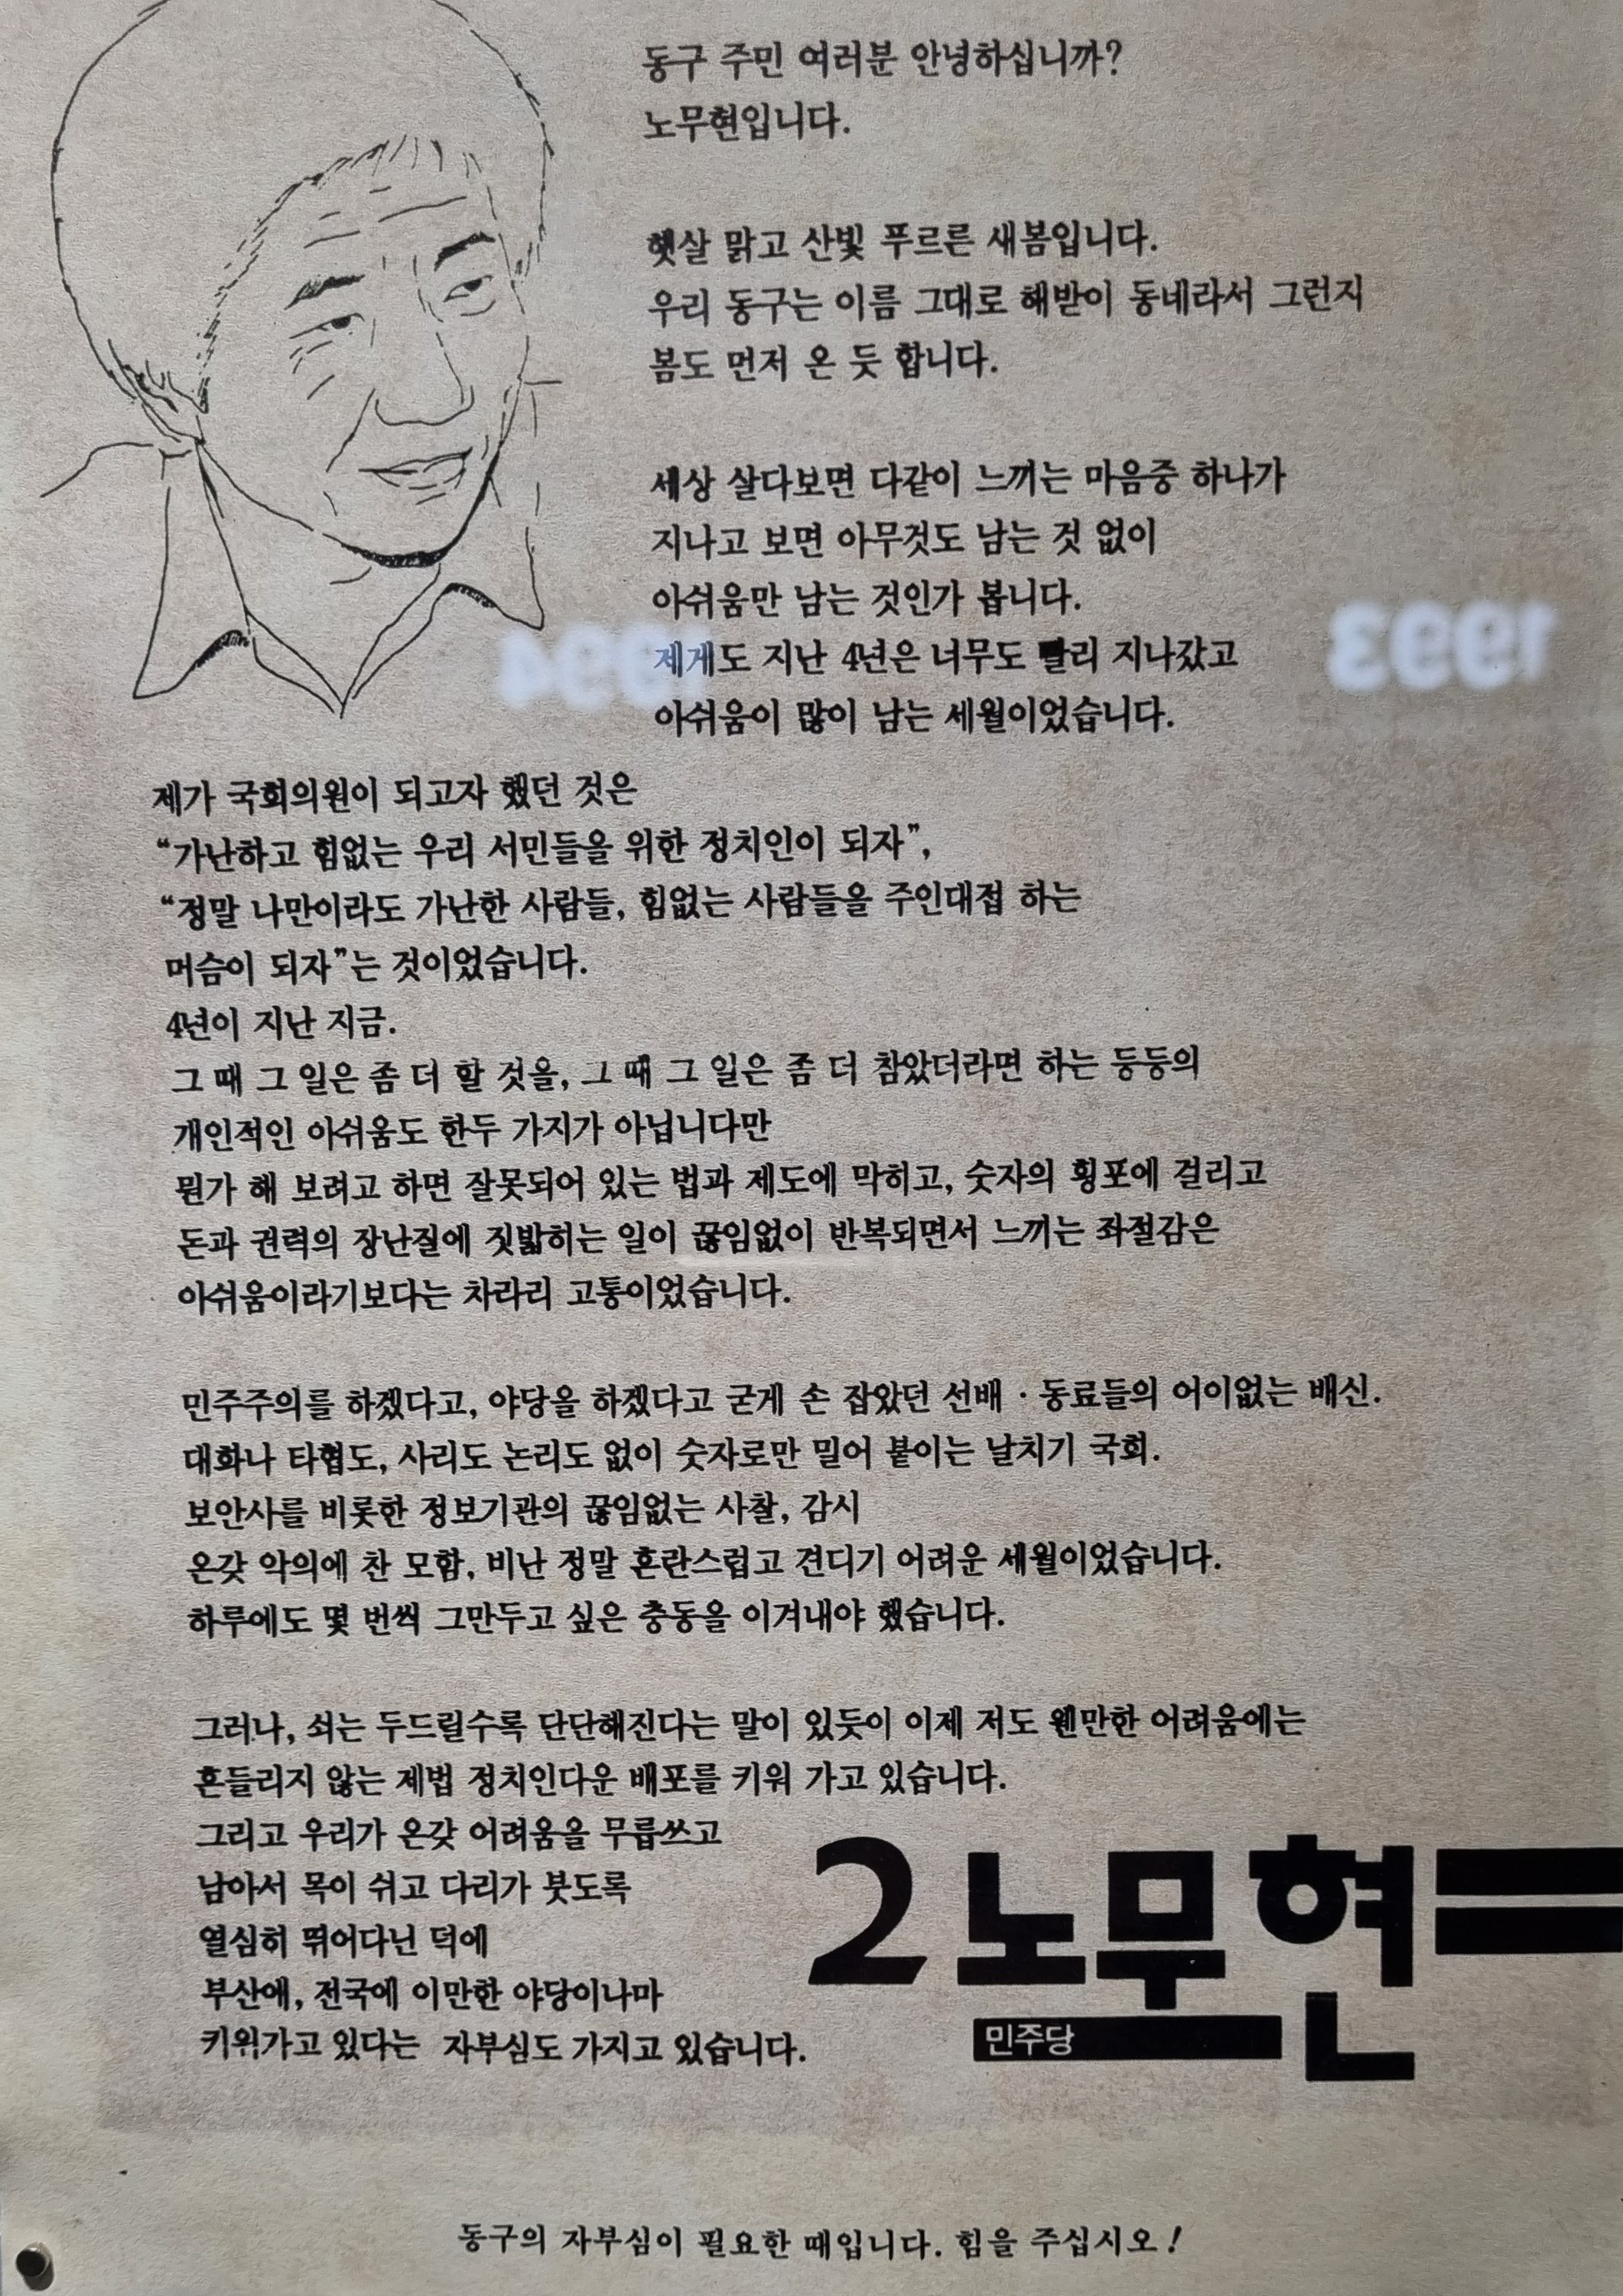 동구 주민 여러분 안녕하십니까?
노무현입니다.
햇살 맑고 산빛 푸르른 새봄입니다.
우리 동구는 이름 그대로 해받이 동네라서 그런지
봄도 먼저 온 듯 합니다.
세상 살다보면 다같이 느끼는 마음중 하나가
지나고 보면 아무것도 남는 것 없이
아쉬움만 남는 것인가 봅니다.
제게도 지난 4년은 너무도 빨리 지나갔고
아쉬움이 많이 남는 세월이었습니다.
1994
1993
제가 국회의원이 되고자 했던 것은
“가난하고 힘없는 우리 서민들을 위한 정치인이 되자”,
“정말 나만이라도 가난한 사람들, 힘없는 사람들을 주인대접 하는
머슴이 되자”는 것이었습니다.
4년이 지난 지금.
그 때 그 일은 좀 더 할 것을, 그 때 그 일은 좀 더 참았더라면 하는 등등의
개인적인 아쉬움도 한두 가지가 아닙니다만
뭔가 해 보려고 하면 잘못되어 있는 법과 제도에 막히고, 숫자의 횡포에 걸리고
돈과 권력의 장난질에 짓밟히는 일이 끊임없이 반복되면서 느끼는 좌절감은
아쉬움이라기보다는 차라리 고통이었습니다.
민주주의를 하겠다고, 야당을 하겠다고 굳게 손 잡았던 선배 · 동료들의 어이없는 배신.
대화나 타협도, 사리도 논리도 없이 숫자로만 밀어 붙이는 날치기 국회.
보안사를 비롯한 정보기관의 끊임없는 사찰, 감시
온갖 악의에 찬 모함, 비난 정말 혼란스럽고 견디기 어려운 세월이었습니다.
하루에도 몇 번씩 그만두고 싶은 충동을 이겨내야 했습니다.
그러나, 쇠는 두드릴수록 단단해진다는 말이 있듯이 이제 저도 웬만한 어려움에는
흔들리지 않는 제법 정치인다운 배포를 키워 가고 있습니다.
그리고 우리가 온갖 어려움을 무릅쓰고
남아서 목이 쉬고 다리가 붓도록
열심히 뛰어다닌 덕에
부산에, 전국에 이만한 야당이나마
키워가고 있다는 자부심도 가지고 있습니다.
2 노무현
민주당
동구의 자부심이 필요한 때입니다. 힘을 주십시오!